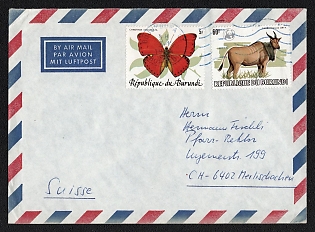 BY AIR MAIL
PAR AVION
MIT LUFTPOST
5F
République du Burundi
60F
REPUBLIQUE DU BURUNDI
Herrn
Hermann
Pfarr-Rektor
Luzernerstr. 199
CH-6402 Merlischachen
Suisse